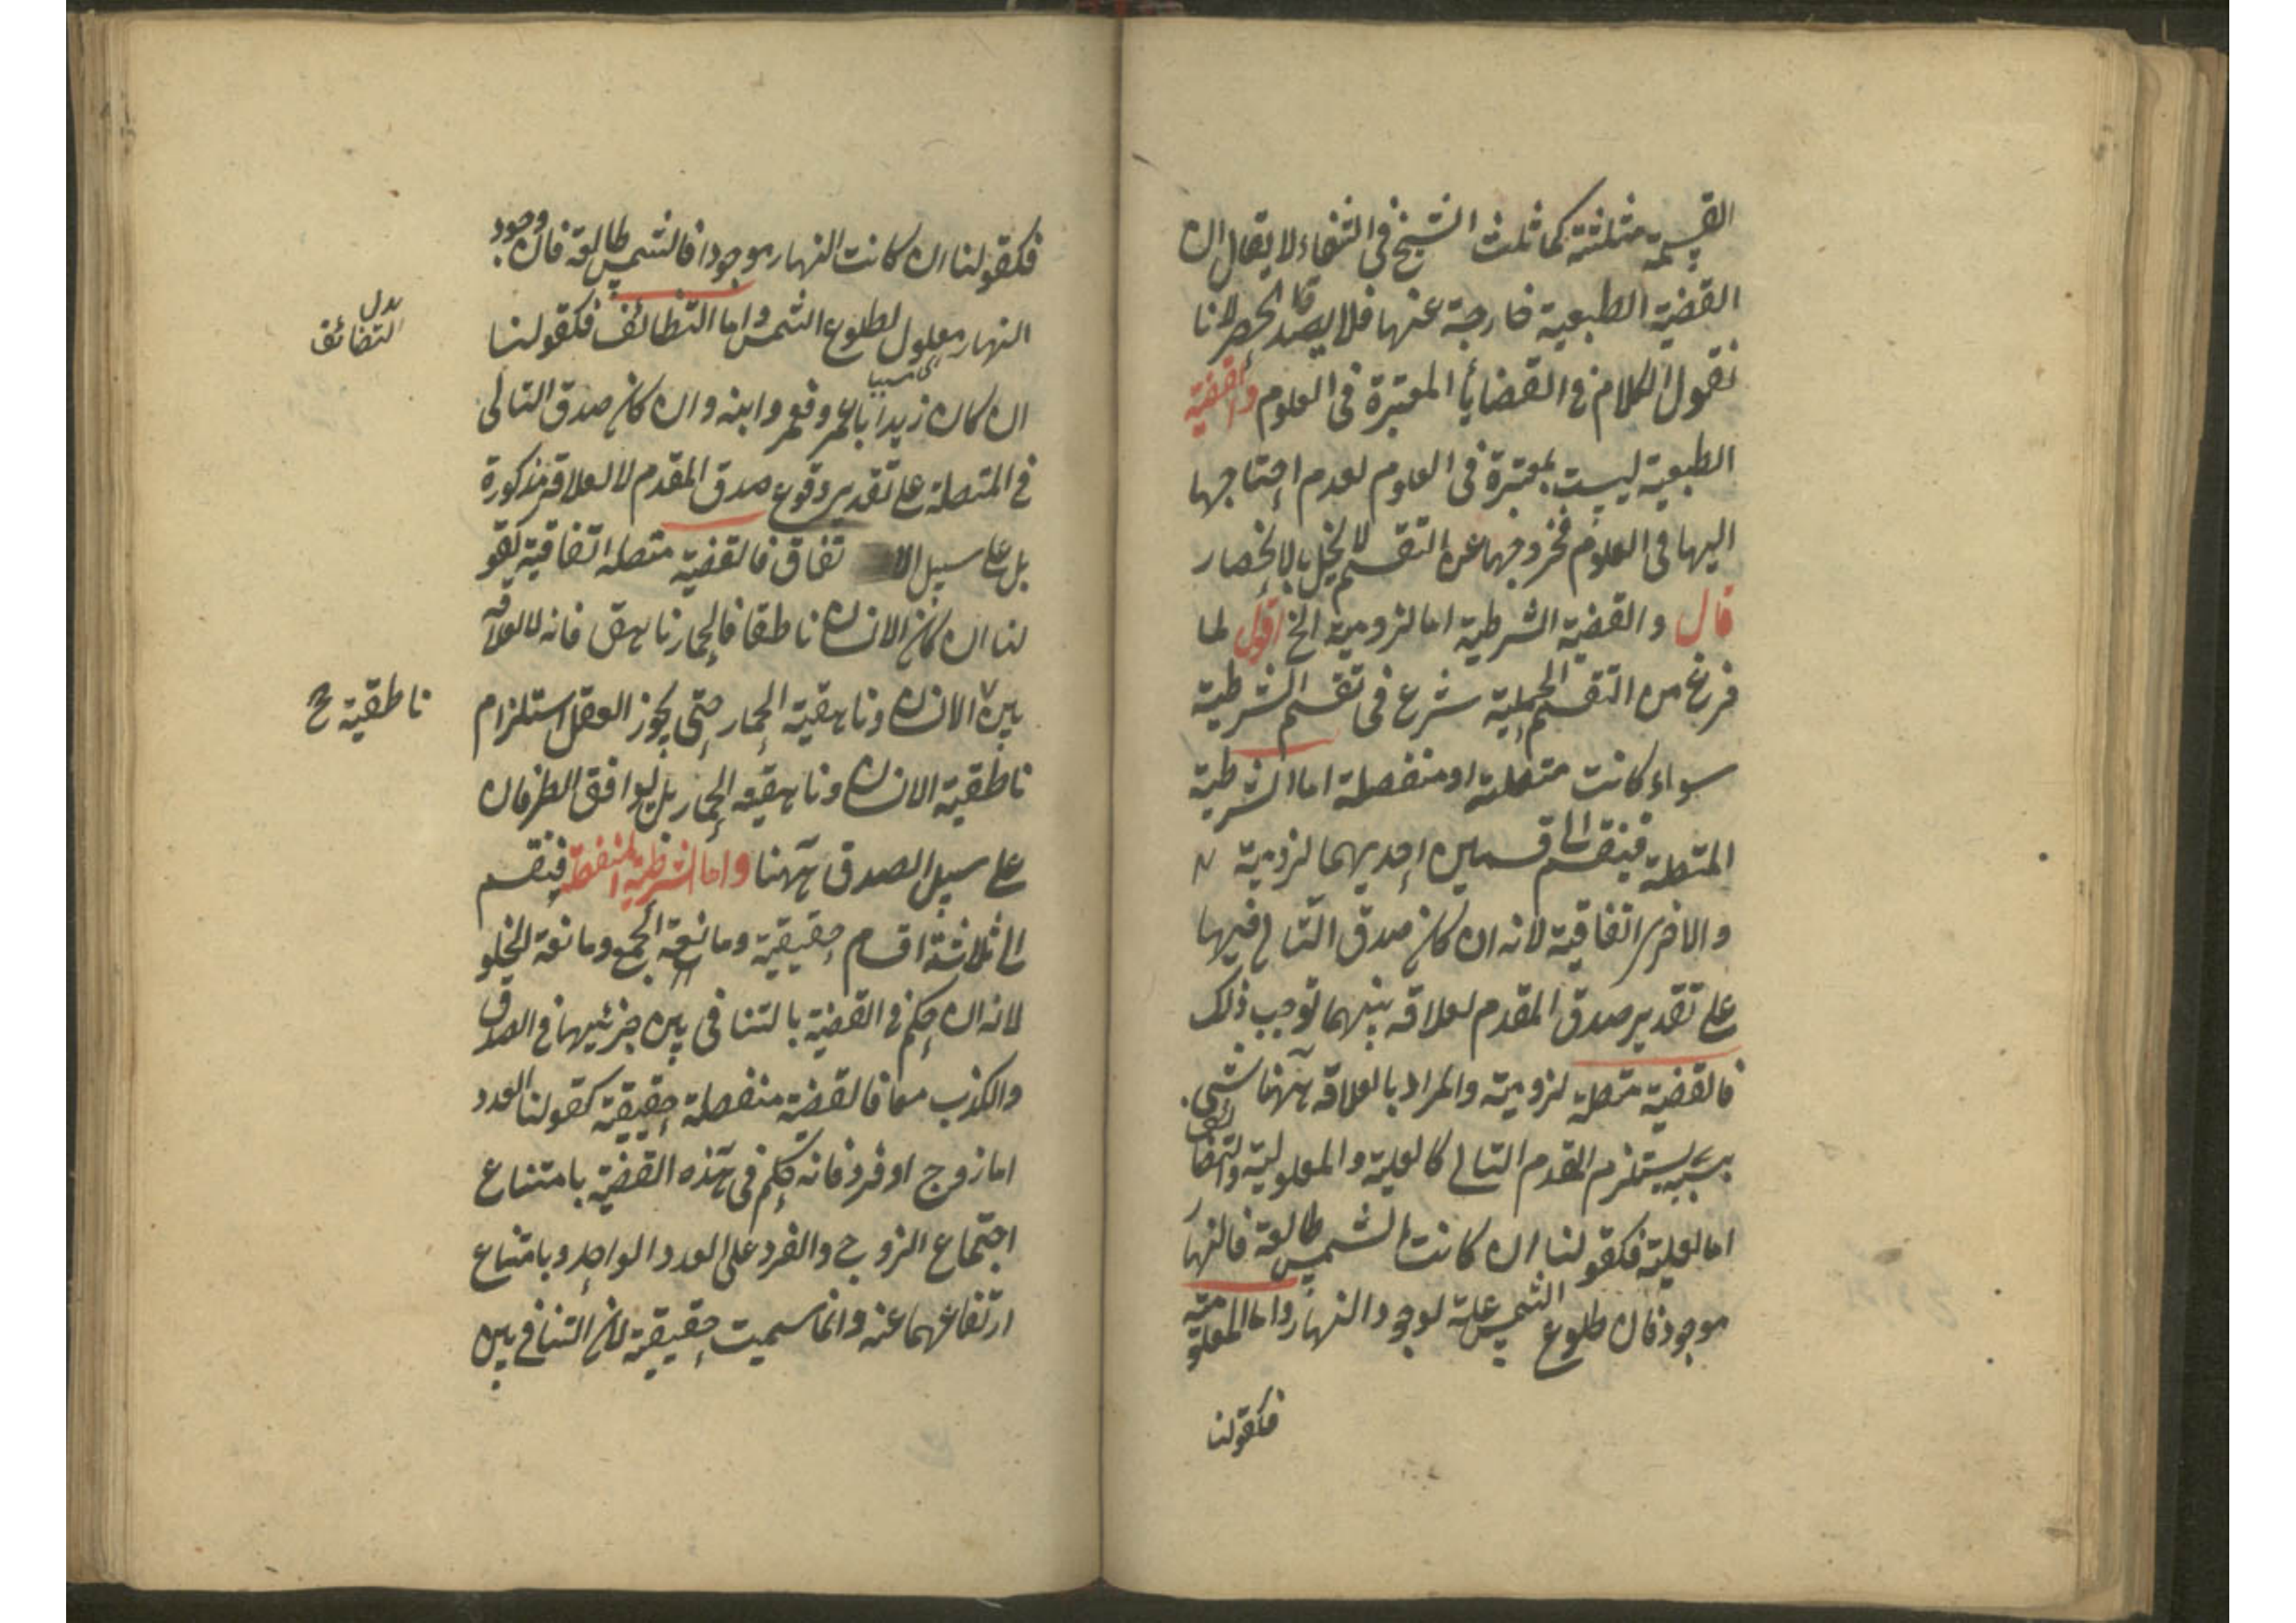 القسمة مثلثة كما ثلث الشيخ في الشفاء لا يقال ان
القضية الطبعية خارجة عنها فلا يصدق الحصر لانا
نقول الكلام في القضايا المعتبرة في العلوم والقضية
الطبعية ليست بمعتبرة في العلوم لعدم احتاجها
اليها في العلوم فخروجها عن التقسيم لا يخل بالانحصار
قال والقضية الشرطية اما لزومية الخ اقول لما
فرغ من التقسيم الحملية شرع في تقسيم الشرطية
سواء كانت متصلة او منفصلة اما الشرطية
المتصلة فينقسم الى قسمين احديهما لزومية
والاخرى اتفاقية لانه ان كان صدق التالي فيها
على تقدير صدق المقدم لعلاقة بينهما توجب ذلك
فالقضية متصلة لزومية والمراد بالعلاقة ههنا شيء
بسببه يستلزم المقدم التالي كالعلية والمعلولية والتضائف
اما العلية فكقولنا ان كانت الشمس طالعة فالنهار
موجود فان طلوع الشمس علة لوجود النهار واما المعلومية
فكقولنا
فكقولنا ان كانت النهار موجودا فالشمس طالعة فان وجود
النهار معلول لطلوع الشمس واما التطائف فكقولنا
بدل
التضائف
ان كان زيد ابا عمرو فعمرو ابنه وان كان صدق التالي
في المتصلة على تقدير وقوع صدق المقدم لا لعلاقة مذكورة
بل على سبيل الاتفاق فالقضية متصلة اتفاقية كقو
لنا ان كان الانسان ناطقا فالحمار ناهق فانه لا علاقة
بين الانسان وناهقية الحمار حتى يجوز العقل استلزام
ناطقية ح
ناطقية الانسان وناهقية الحمار بل توافق الطرفان
على سبيل الصدق ههنا واما الشرطية المنفصلة فينقسم
الى ثلاثة اقسام حقيقية ومانعة الجمع ومانعة الخلو
لانه ان حكم في القضية بالتنافي بين جزئيها في الصدق
والكذب معا فالقضية منفصلة حقيقية كقولنا العدد
اما زوج او فرد فانه حكم في هذه القضية بامتناع
اجتماع الزوج والفرد على العدد الواحد وبامتناع
ارتفاعهما عنه وانما سميت حقيقية لان التنافي بين